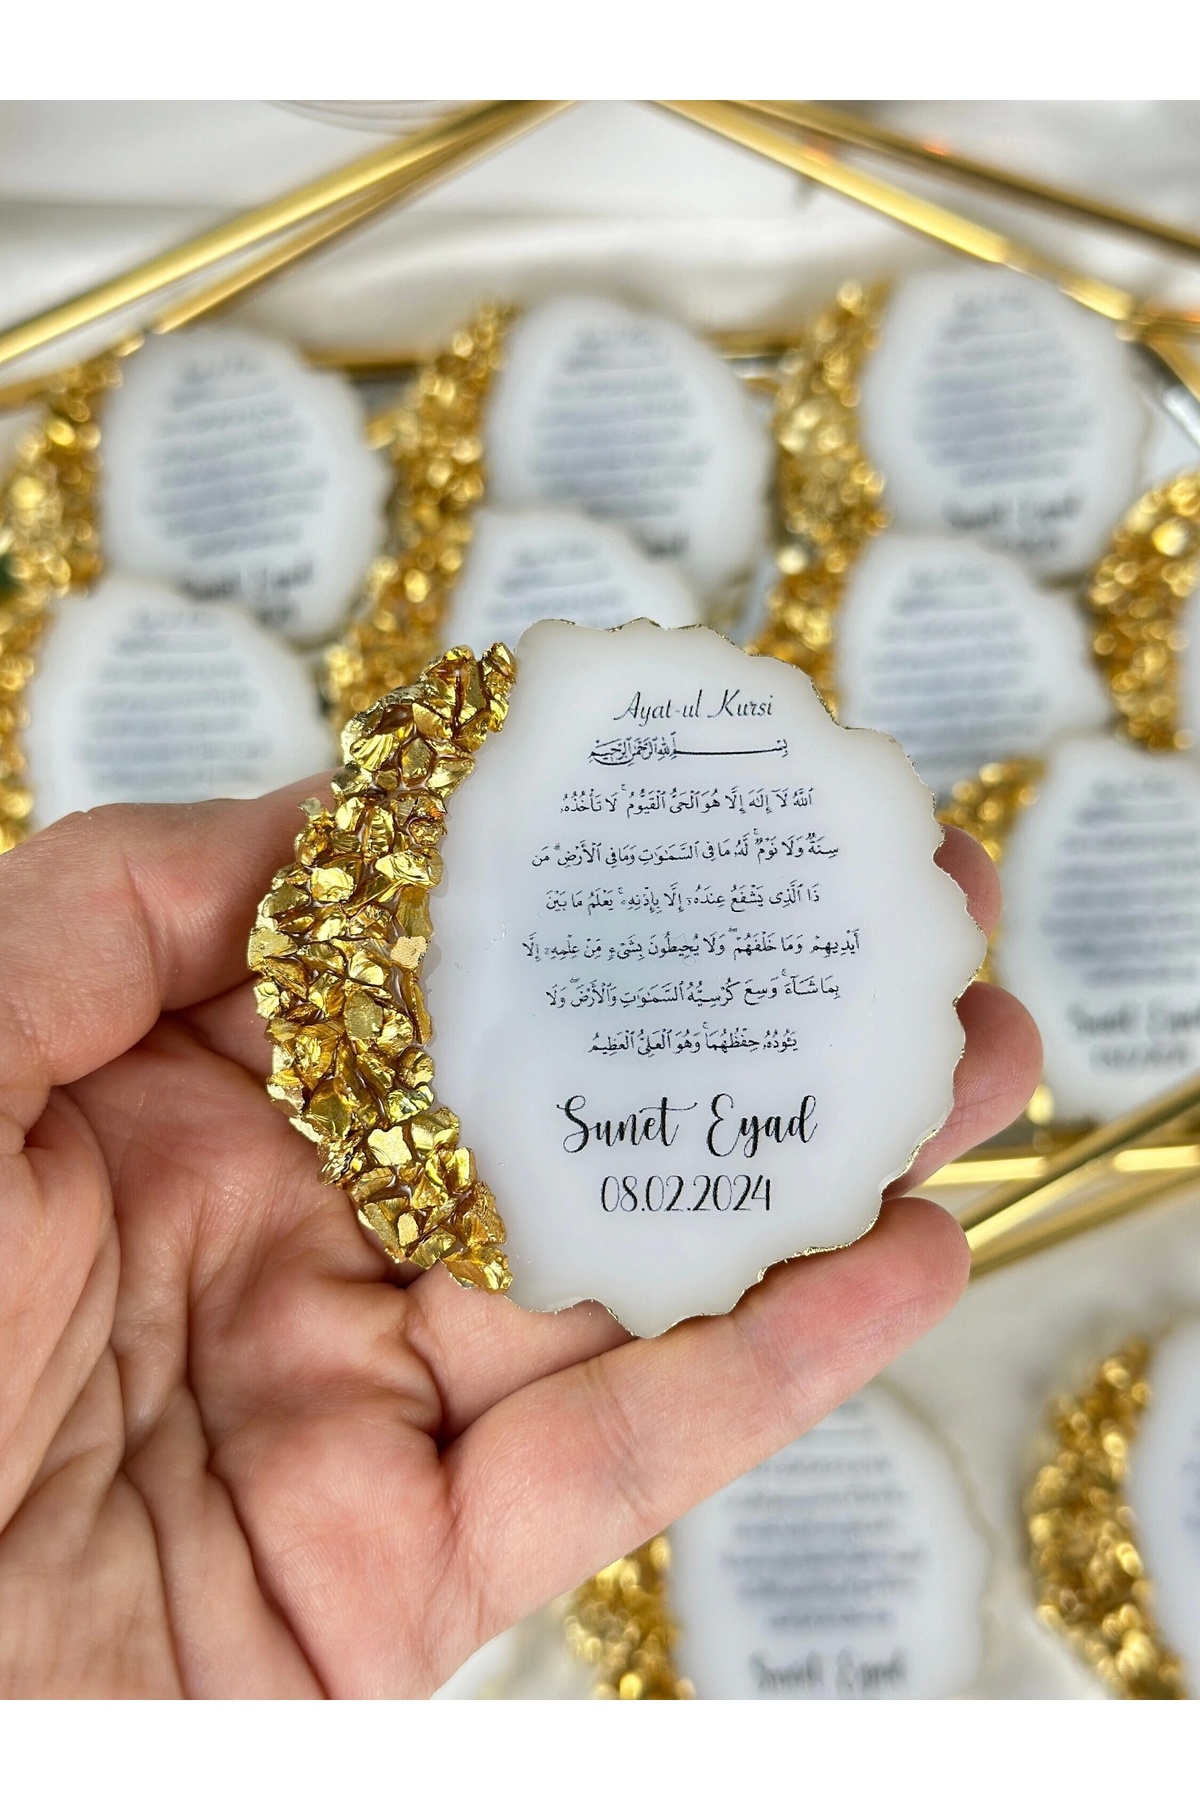 Ayat-ul Kursi
بِسْمِ ٱللَّهِ ٱلرَّحْمَٰنِ ٱلرَّحِيمِ
ٱللَّهُ لَآ إِلَٰهَ إِلَّا هُوَ ٱلْحَىُّ ٱلْقَيُّومُ ۚ لَا تَأْخُذُهُۥ
سِنَةٌ وَلَا نَوْمٌ ۚ لَّهُۥ مَا فِى ٱلسَّمَٰوَٰتِ وَمَا فِى ٱلْأَرْضِ ۗ مَن
ذَا ٱلَّذِى يَشْفَعُ عِندَهُۥٓ إِلَّا بِإِذْنِهِۦ ۚ يَعْلَمُ مَا بَيْنَ
أَيْدِيهِمْ وَمَا خَلْفَهُمْ ۖ وَلَا يُحِيطُونَ بِشَىْءٍ مِّنْ عِلْمِهِۦٓ إِلَّا
بِمَا شَآءَ ۚ وَسِعَ كُرْسِيُّهُ ٱلسَّمَٰوَٰتِ وَٱلْأَرْضَ ۖ وَلَا
يَـُٔودُهُۥ حِفْظُهُمَا ۚ وَهُوَ ٱلْعَلِىُّ ٱلْعَظِيمُ
Sunet Eyad
08.02.2024